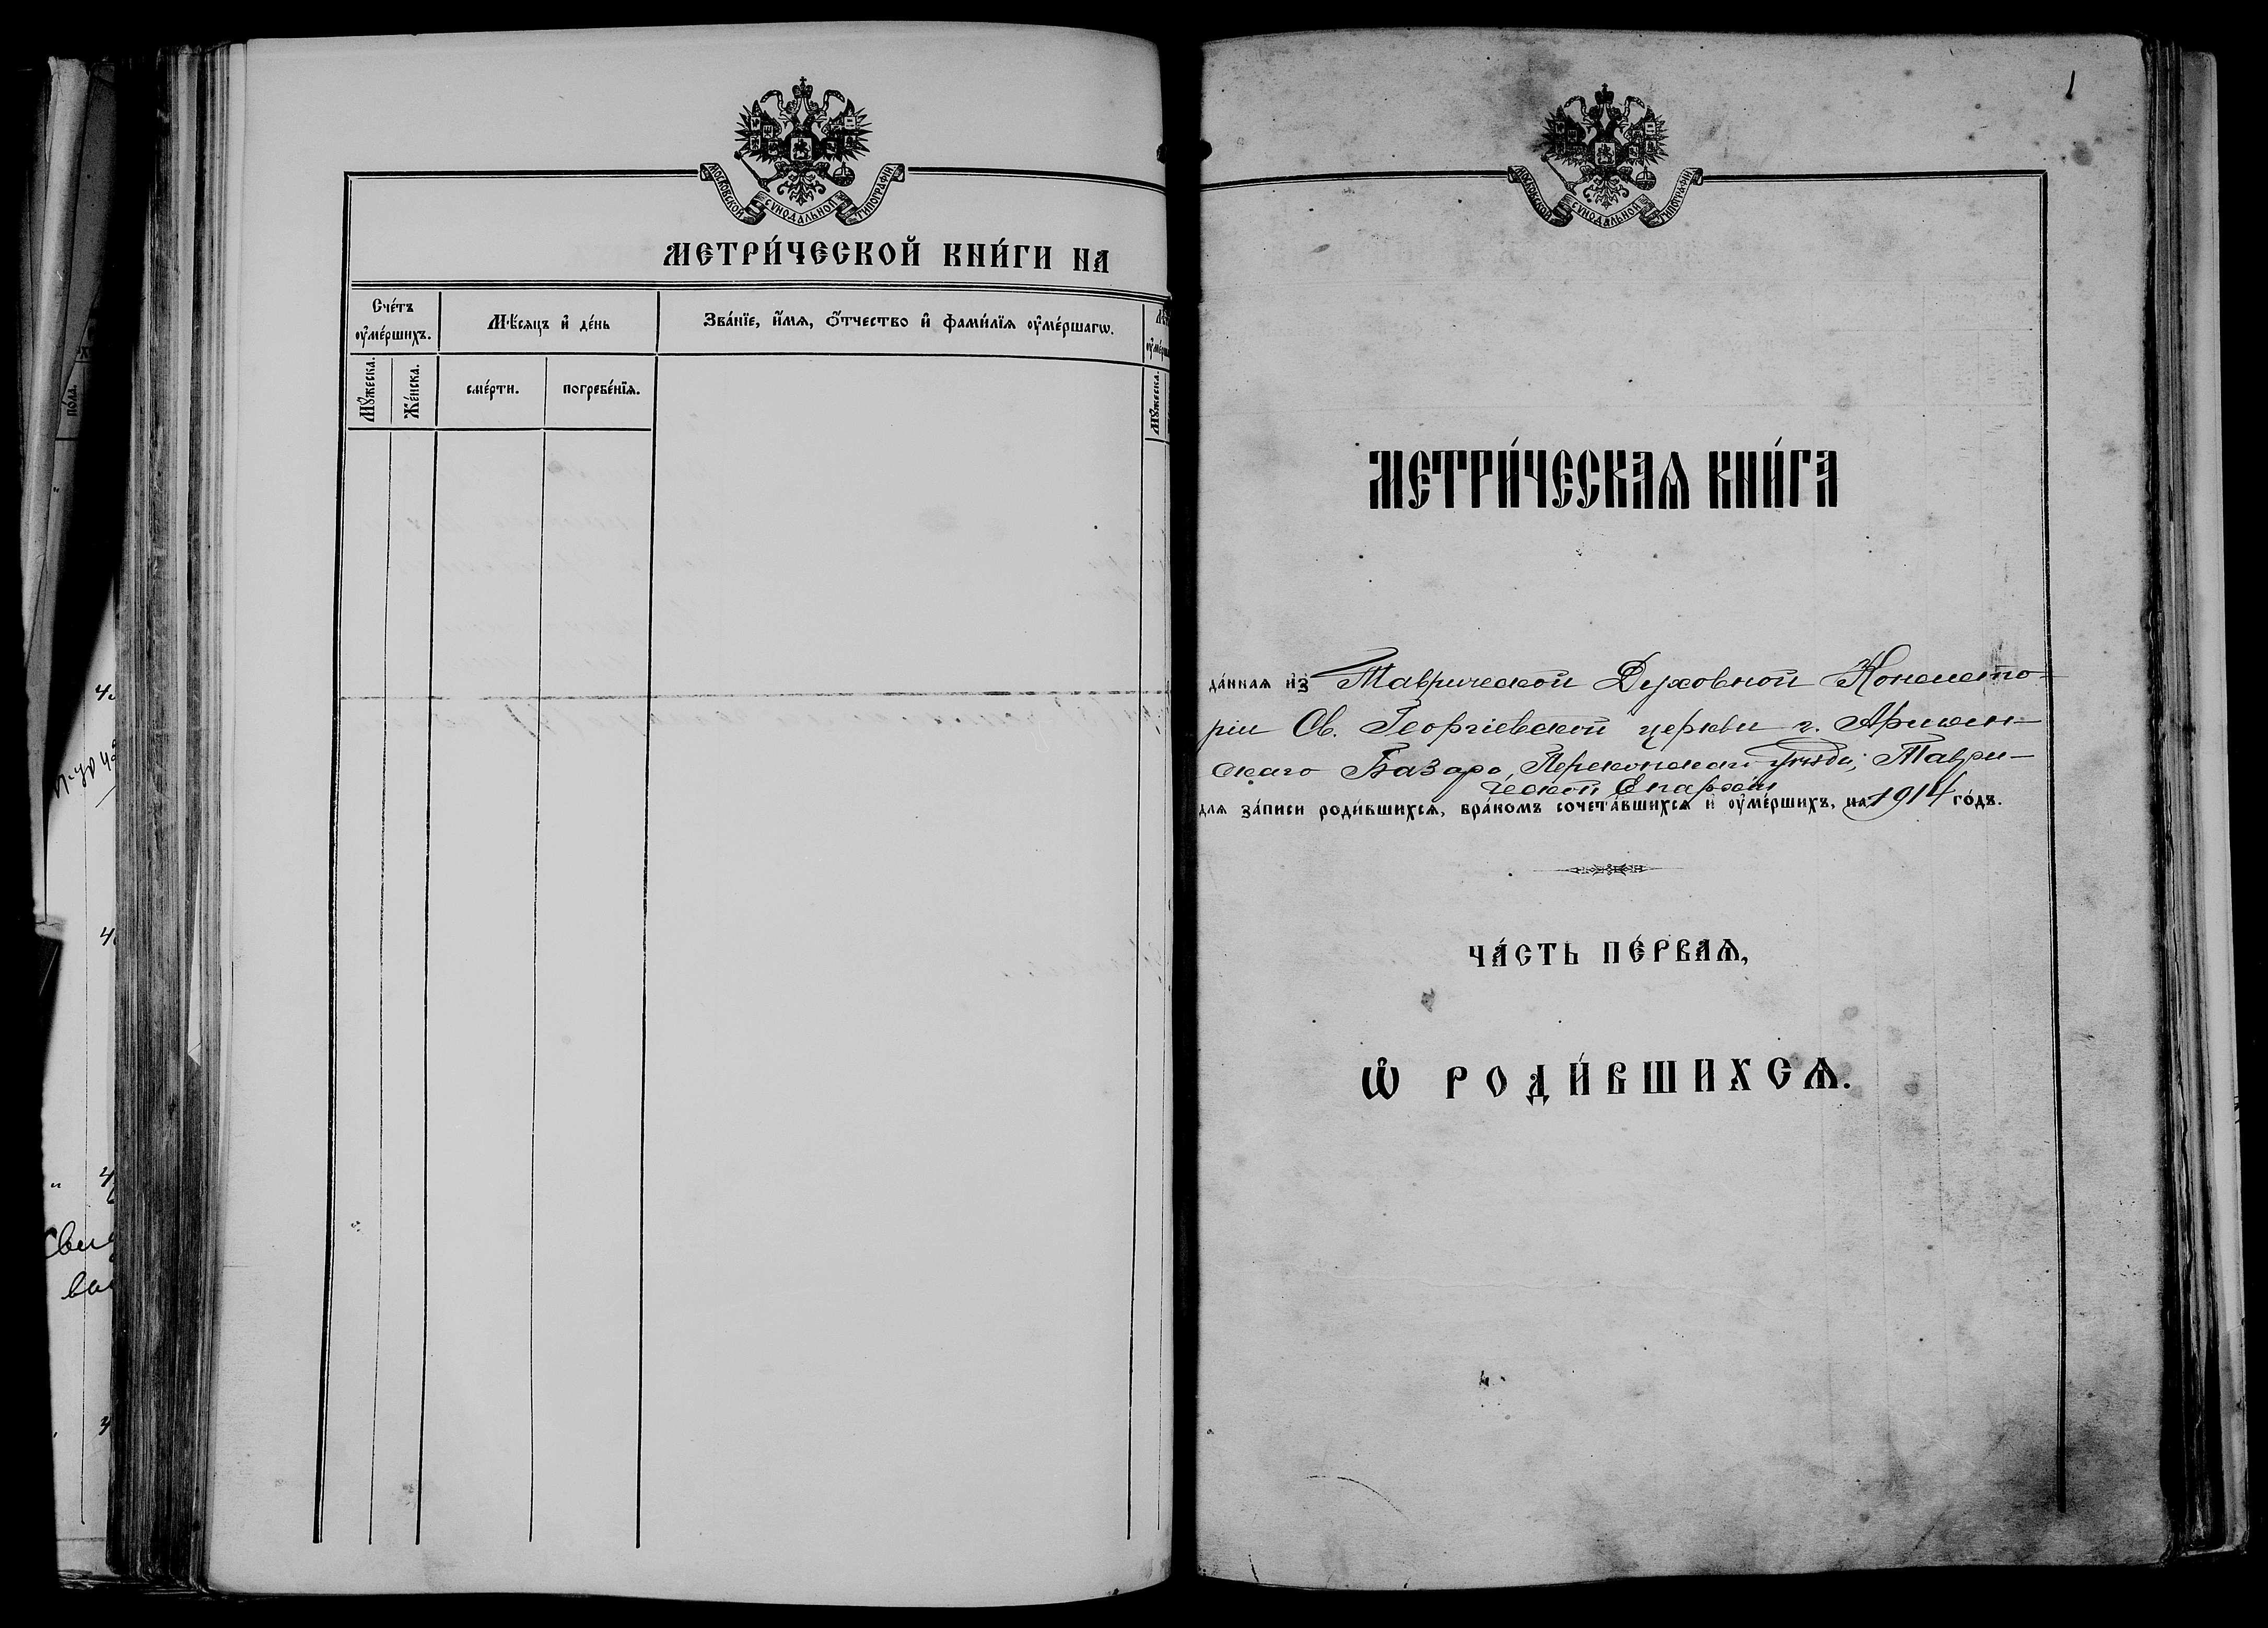 МОСКОВСКОЙ СѴНОДАЛЬНОЙ ТИПОГРАФІИ
МЕТРИ́ЧЕСКОЙ КНИ́ГИ НА
Сче́тъ
ᲂу҆ме́ршихъ.
Мѣ́сяцъ и҆ де́нь
Зва́нїе, и҆́мѧ, ѻ҆́тчество и҆ фами́лїѧ ᲂу҆ме́ршагѡ.
Мꙋ́жеска.
Же́нска.
сме́рти.
погребе́нїѧ.
Мꙋ́жеска.
по́ла.
1
МОСКОВСКОЙ СѴНОДАЛЬНОЙ ТИПОГРАФІИ
МЕТРИ́ЧЕСКАѦ КНИ́ГА
да́ннаѧ и҆з Таврической Духовной Консисто-
ріи Св. Георгіевской церкви г. Армян-
скаго Базара, Перекопскаго уѣзда, Таври-
ческой Епархіи
для за́писи роди́вшихсѧ, бра́комъ сочета́вшихсѧ и҆ ᲂу҆ме́ршихъ, на 1914 го́дъ.
ЧА́СТЬ ПЕ́РВАѦ,
Ѡ҆ РОДИ́ВШИХСѦ.